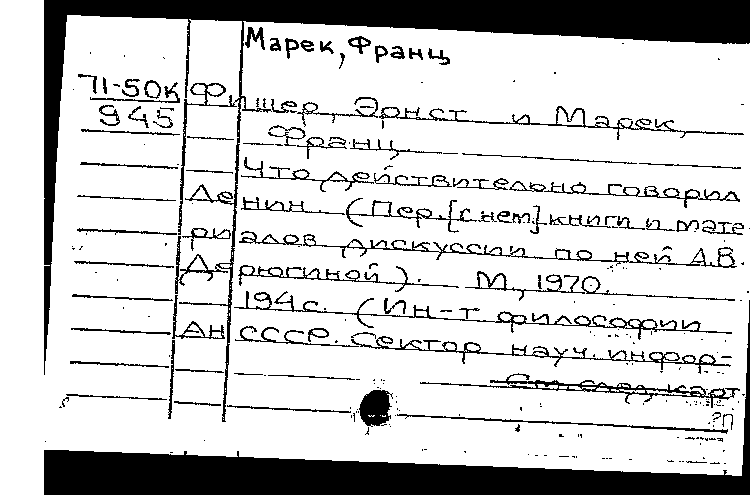 Марек, Франц
71-50к Фишер, Эрнст и Марек,
945 Франц.
Что действительно говорил
Ленин. (Пер. [с нем] книги и мате-
риалов дискуссии по ней А.В.
Дерюгиной). М., 1970.
194 с. (Ин-т философии
АН СССР. Сектор науч. инфор-
См. след. карт.